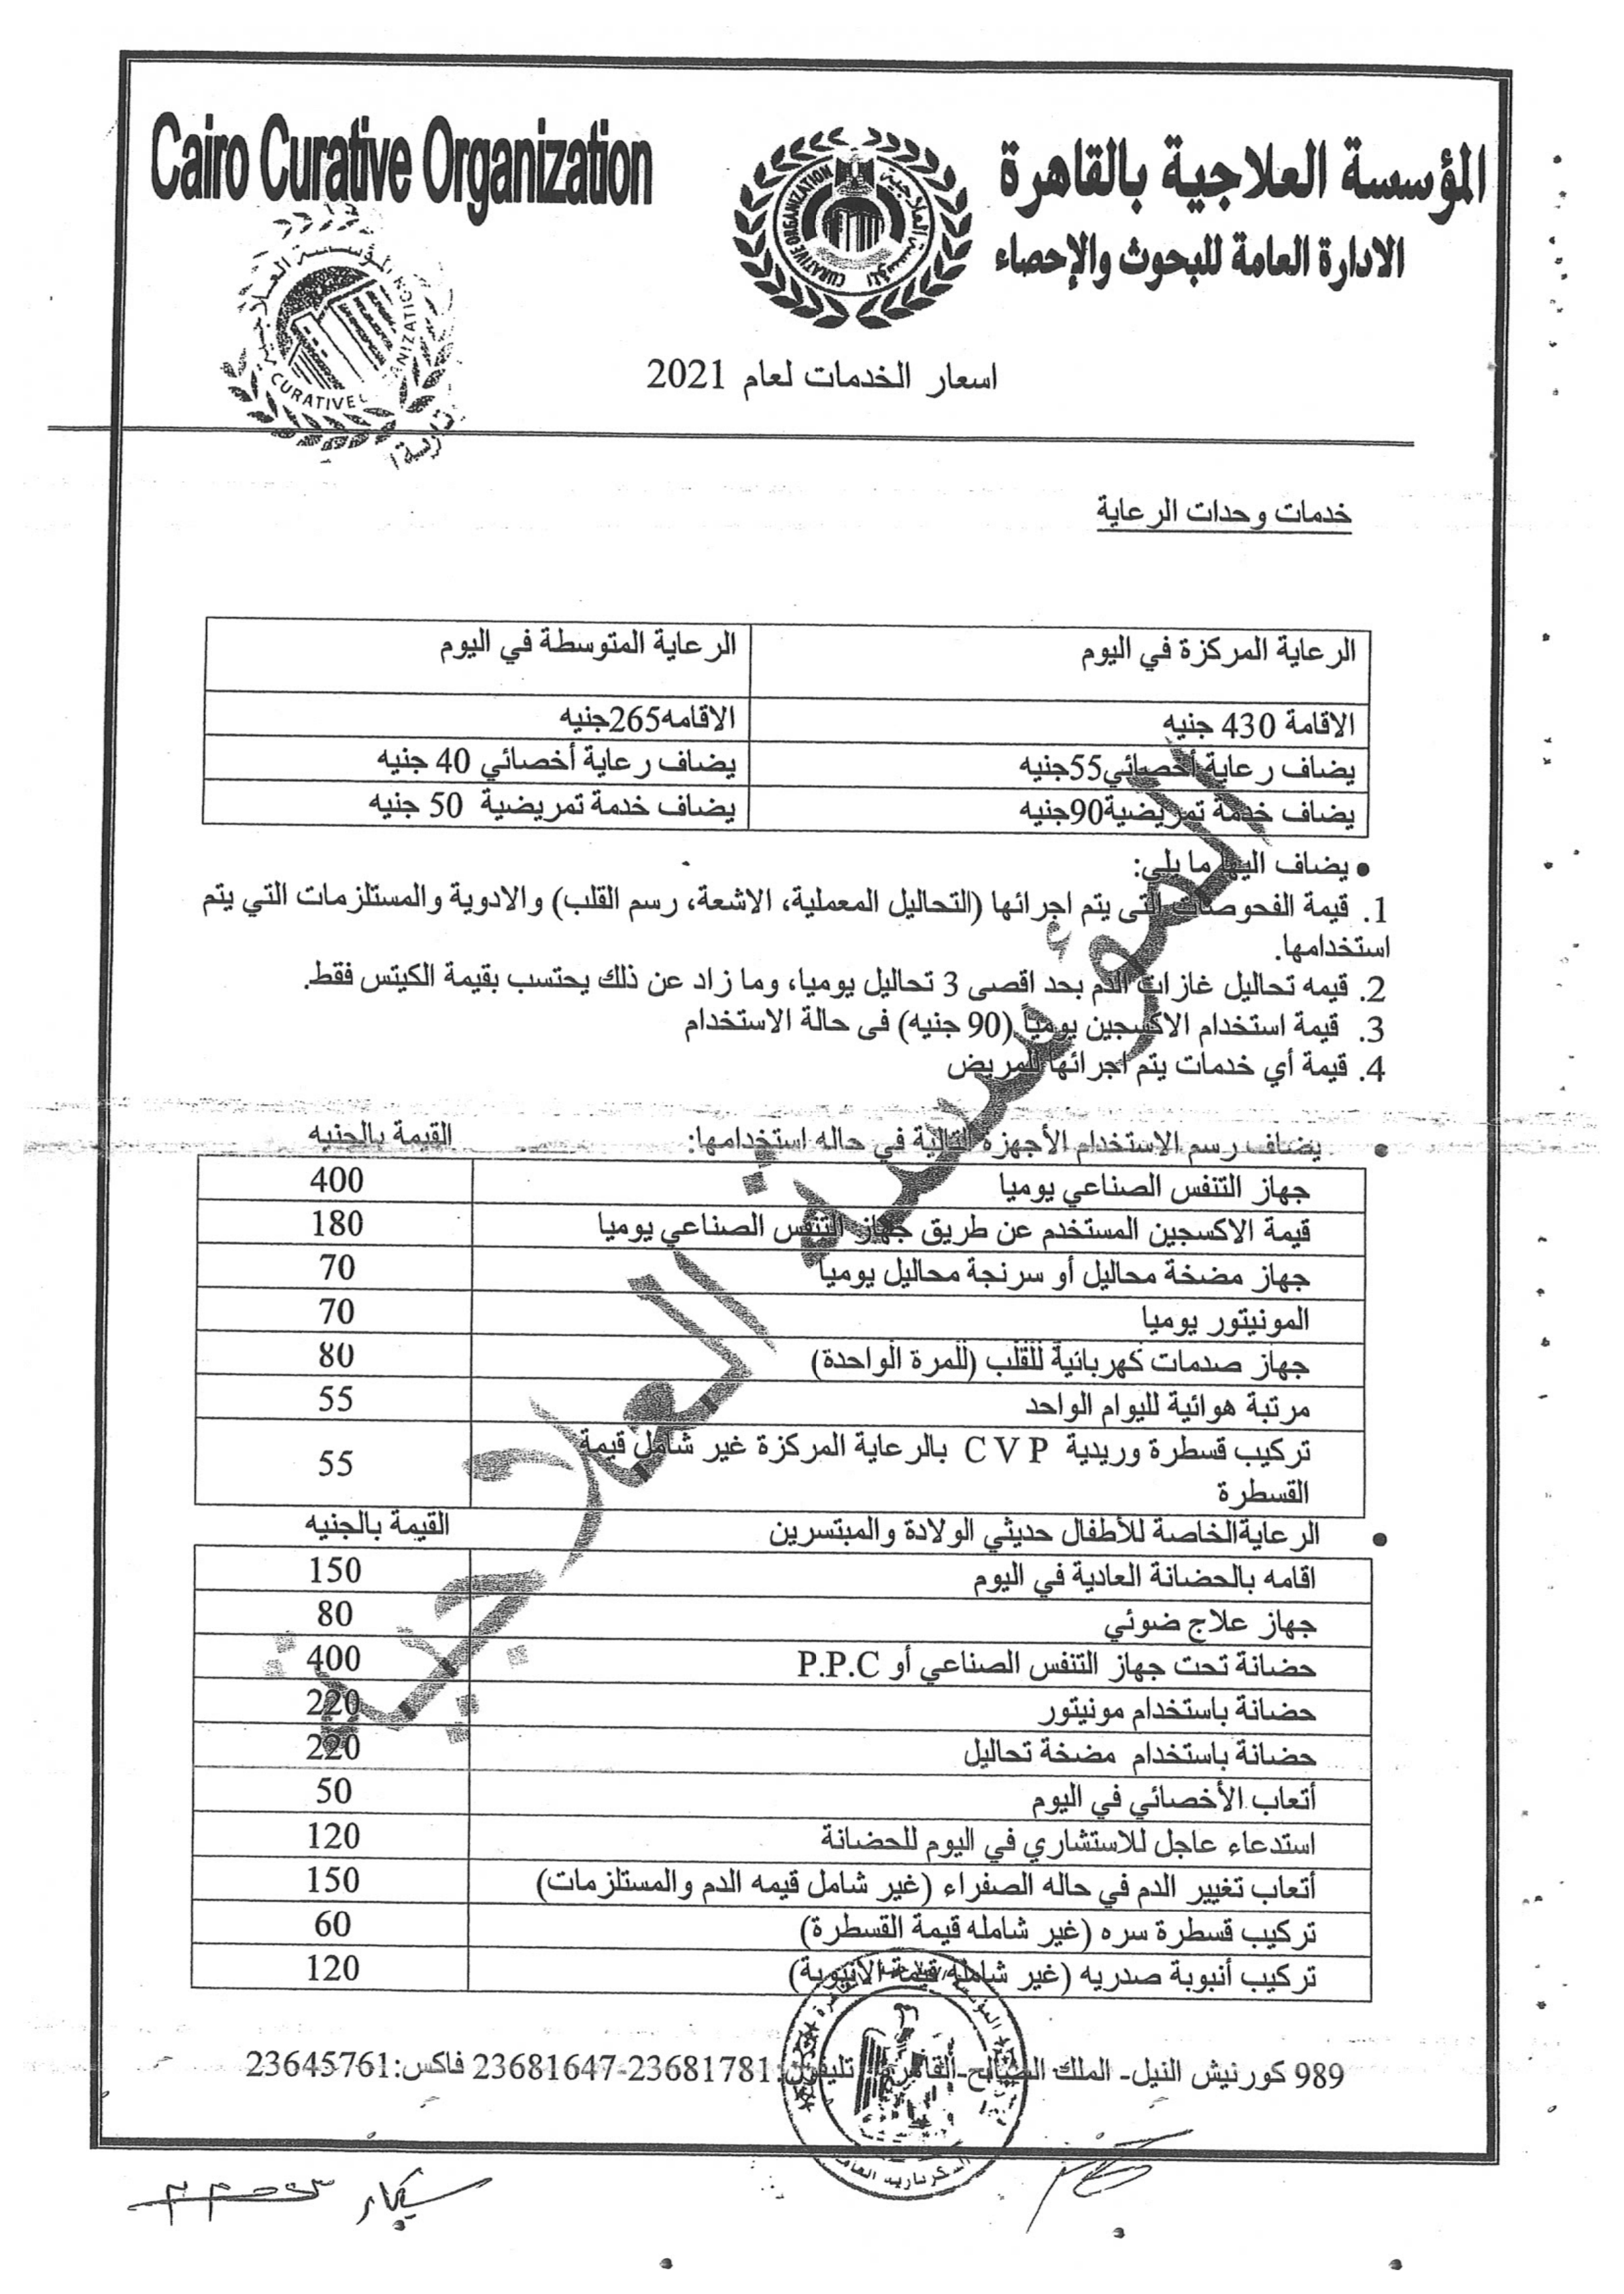 Cairo Curative Organization
المؤسسة العلاجية بالقاهرة
الادارة العامة للبحوث والإحصاء
CURATIVE ORGANIZATION
المؤسسة العلاجية
اسعار الخدمات لعام 2021
خدمات وحدات الرعاية
الرعاية المركزة في اليوم
الرعاية المتوسطة في اليوم
الاقامة 430 جنيه
الاقامه265جنيه
يضاف رعاية أخصائي55جنيه
يضاف رعاية أخصائي 40 جنيه
يضاف خدمة تمريضية90جنيه
يضاف خدمة تمريضية 50 جنيه
• يضاف اليها ما يلي:
1. قيمة الفحوصات التى يتم اجرائها (التحاليل المعملية، الاشعة، رسم القلب) والادوية والمستلزمات التي يتم
استخدامها.
2. قيمه تحاليل غازات الدم بحد اقصى 3 تحاليل يوميا، وما زاد عن ذلك يحتسب بقيمة الكيتس فقط.
3. قيمة استخدام الاكسجين يومياً (90 جنيه) فى حالة الاستخدام
4. قيمة أي خدمات يتم اجرائها للمريض
• يضاف رسم الاستخدام الأجهزة التالية في حاله استخدامها: القيمة بالجنيه
جهاز التنفس الصناعي يوميا 400
قيمة الاكسجين المستخدم عن طريق جهاز التنفس الصناعي يوميا 180
جهاز مضخة محاليل أو سرنجة محاليل يوميا 70
المونيتور يوميا 70
جهاز صدمات كهربائية للقلب (للمرة الواحدة) 80
مرتبة هوائية لليوام الواحد 55
تركيب قسطرة وريدية C V P بالرعاية المركزة غير شامل قيمة
القسطرة 55
• الرعايةالخاصة للأطفال حديثي الولادة والمبتسرين القيمة بالجنيه
اقامه بالحضانة العادية في اليوم 150
جهاز علاج ضوئي 80
حضانة تحت جهاز التنفس الصناعي أو P.P.C 400
حضانة باستخدام مونيتور 220
حضانة باستخدام مضخة تحاليل 220
أتعاب الأخصائي في اليوم 50
استدعاء عاجل للاستشاري في اليوم للحضانة 120
أتعاب تغيير الدم في حاله الصفراء (غير شامل قيمه الدم والمستلزمات) 150
تركيب قسطرة سره (غير شامله قيمة القسطرة) 60
تركيب أنبوبة صدريه (غير شامله قيمة الانبوبة) 120
المؤسسة العلاجية
989 كورنيش النيل- الملك الصالح-القاهرة تليفون:23681781-23681647 فاكس:23645761